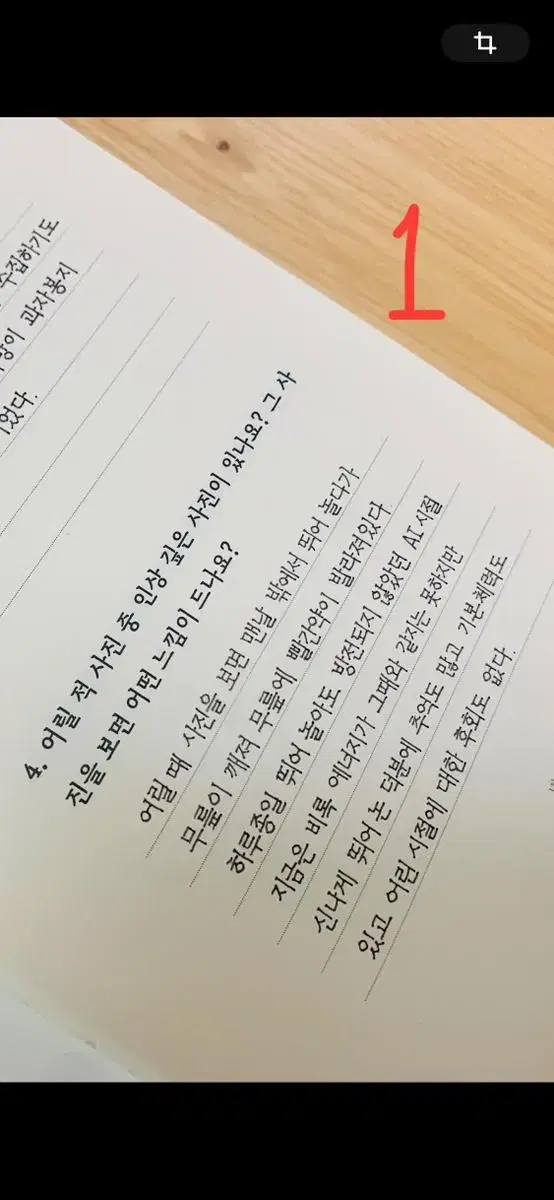 수집하기도
과자봉지
었다.
1
4. 어릴 적 사진 중 인상 깊은 사진이 있나요? 그 사
진을 보면 어떤 느낌이 드나요?
어릴 때 사진을 보면 맨날 밖에서 뛰어 놀다가
무릎이 깨져 무릎에 빨간약이 발라져있다
하루종일 뛰어 놀아도 방전되지 않았던 AI시절
지금은 비록 에너지가 그때와 같지는 못하지만
신나게 뛰어 논 덕분에 추억도 많고 기본체력도
있고 어린 시절에 대한 후회도 없다.